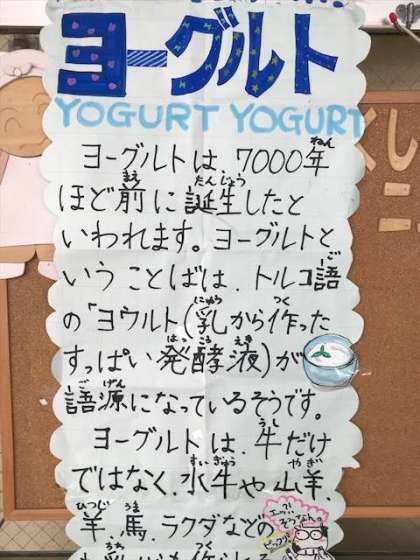 ヨーグルト
YOGURT YOGURT
ヨーグルトは、7000年
ほど前に誕生したと
いわれます。ヨーグルトと
いうことばは、トルコ語
の「ヨウルト(乳から作った
すっぱい発酵液)が
語源になっているそうです。
ヨーグルトは、牛だけ
ではなく、水牛や山羊、
羊、馬、ラクダなどの